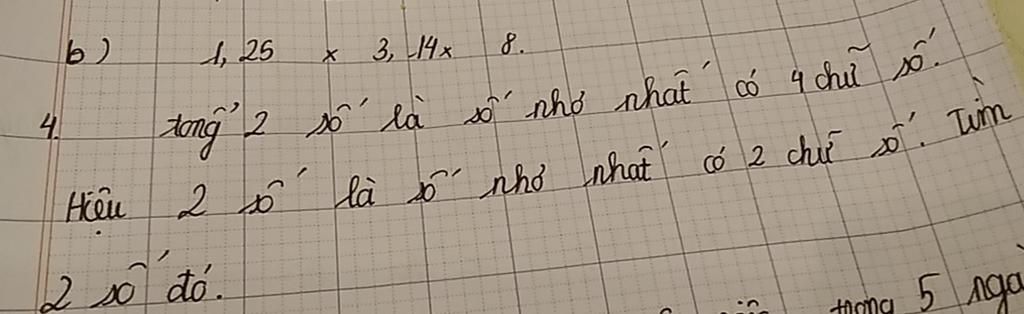 b) 1,25 x 3,14 x 8.
4. tổng 2 số là số nhỏ nhất có 4 chữ số.
Hiệu 2 số là số nhỏ nhất có 2 chữ số. Tìm
2 số đó.
trong 5 ngà